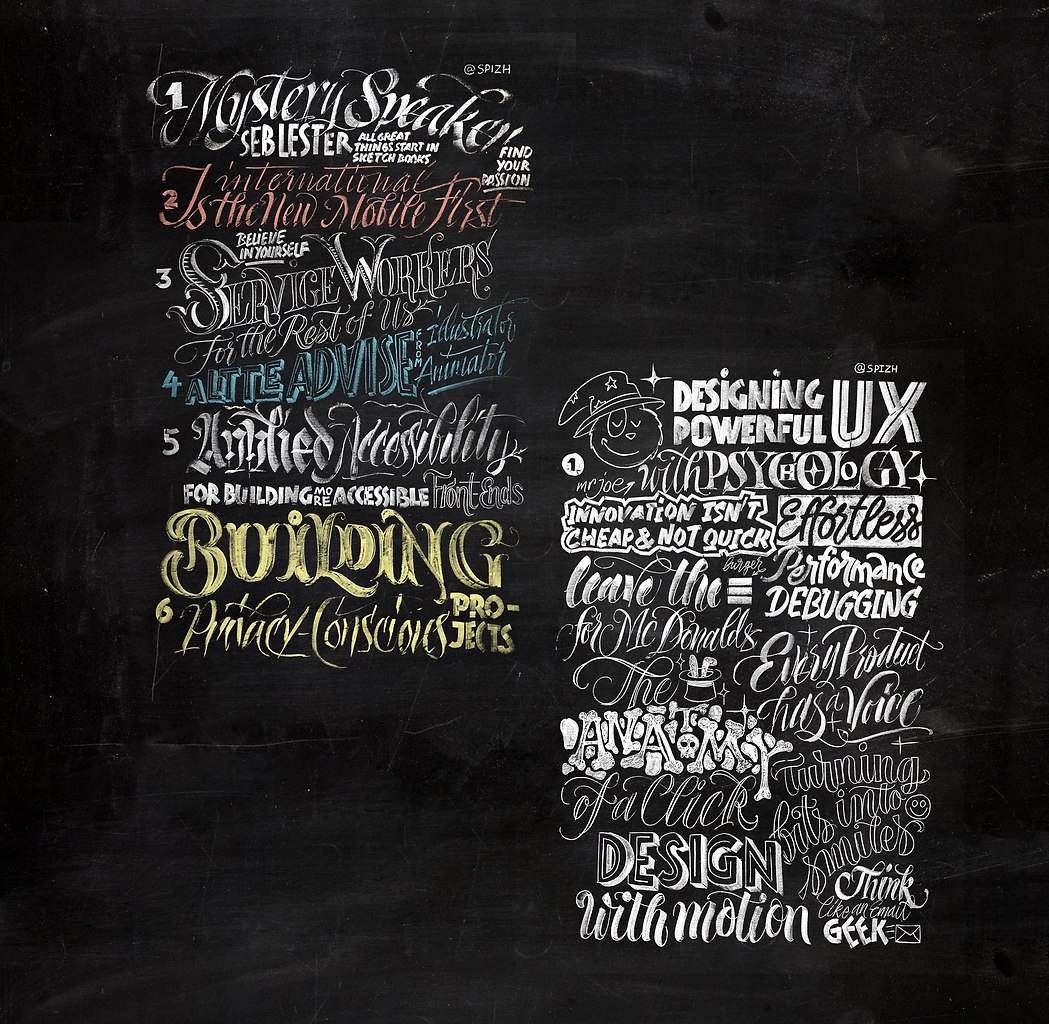 @SPIZH
1 Mystery Speaker
SEB LESTER
ALL GREAT
THINGS START IN
SKETCH BOOKS
FIND
YOUR
PASSION
2 international
Is the New Mobile First
BELIEVE
IN YOURSELF
3 SERVICE WORKERS
For the Rest of Us
4 A LITTE ADVISE FROM Illustrator
Animator
5 Applied Accessibility
FOR BUILDING MORE ACCESSIBLE Front-Ends
BUILDING
6 Privacy-Conscious PRO-
JECTS
@SPIZH
DESIGNING
POWERFUL UX
1. mr joe with PSYCHOLOGY
INNOVATION ISN'T
CHEAP & NOT QUICK
Effortless
Performance
DEBUGGING
leave the burger
for McDonalds
Every Product
has a Voice
The
ANATOMY
of a Click
Turning
bits into
Smiles
DESIGN
with motion
Think
like an Email
GEEK